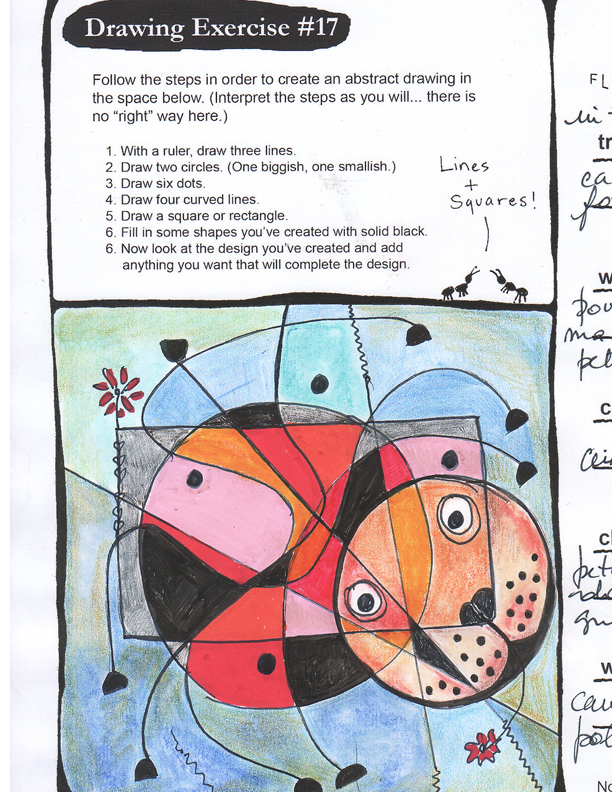 Drawing Exercise #17
Follow the steps in order to create an abstract drawing in
the space below. (Interpret the steps as you will... there is
no "right" way here.)
1. With a ruler, draw three lines.
2. Draw two circles. (One biggish, one smallish.)
3. Draw six dots.
4. Draw four curved lines.
5. Draw a square or rectangle.
6. Fill in some shapes you've created with solid black.
6. Now look at the design you've created and add
anything you want that will complete the design.
Lines
+
Squares!
FL
tr
ca
w
pou
ma
pel
c
cl
pet
w
cau
pot
No